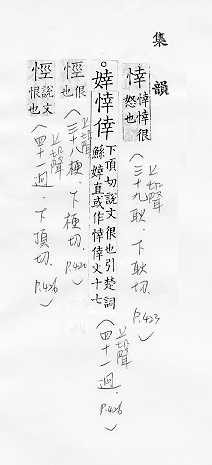 集韻
悻悻悻很怒也(上聲三十九耿.下耿切.P.423)
。婞悻倖下頂切說文很也引楚詞鯀婞直或作悻倖文十七(上聲四十一迥.P.426)
悻恨也(上聲三十八梗.下梗切.P.422)
悻說文恨也(上聲四十一迥.下頂切.P.426)